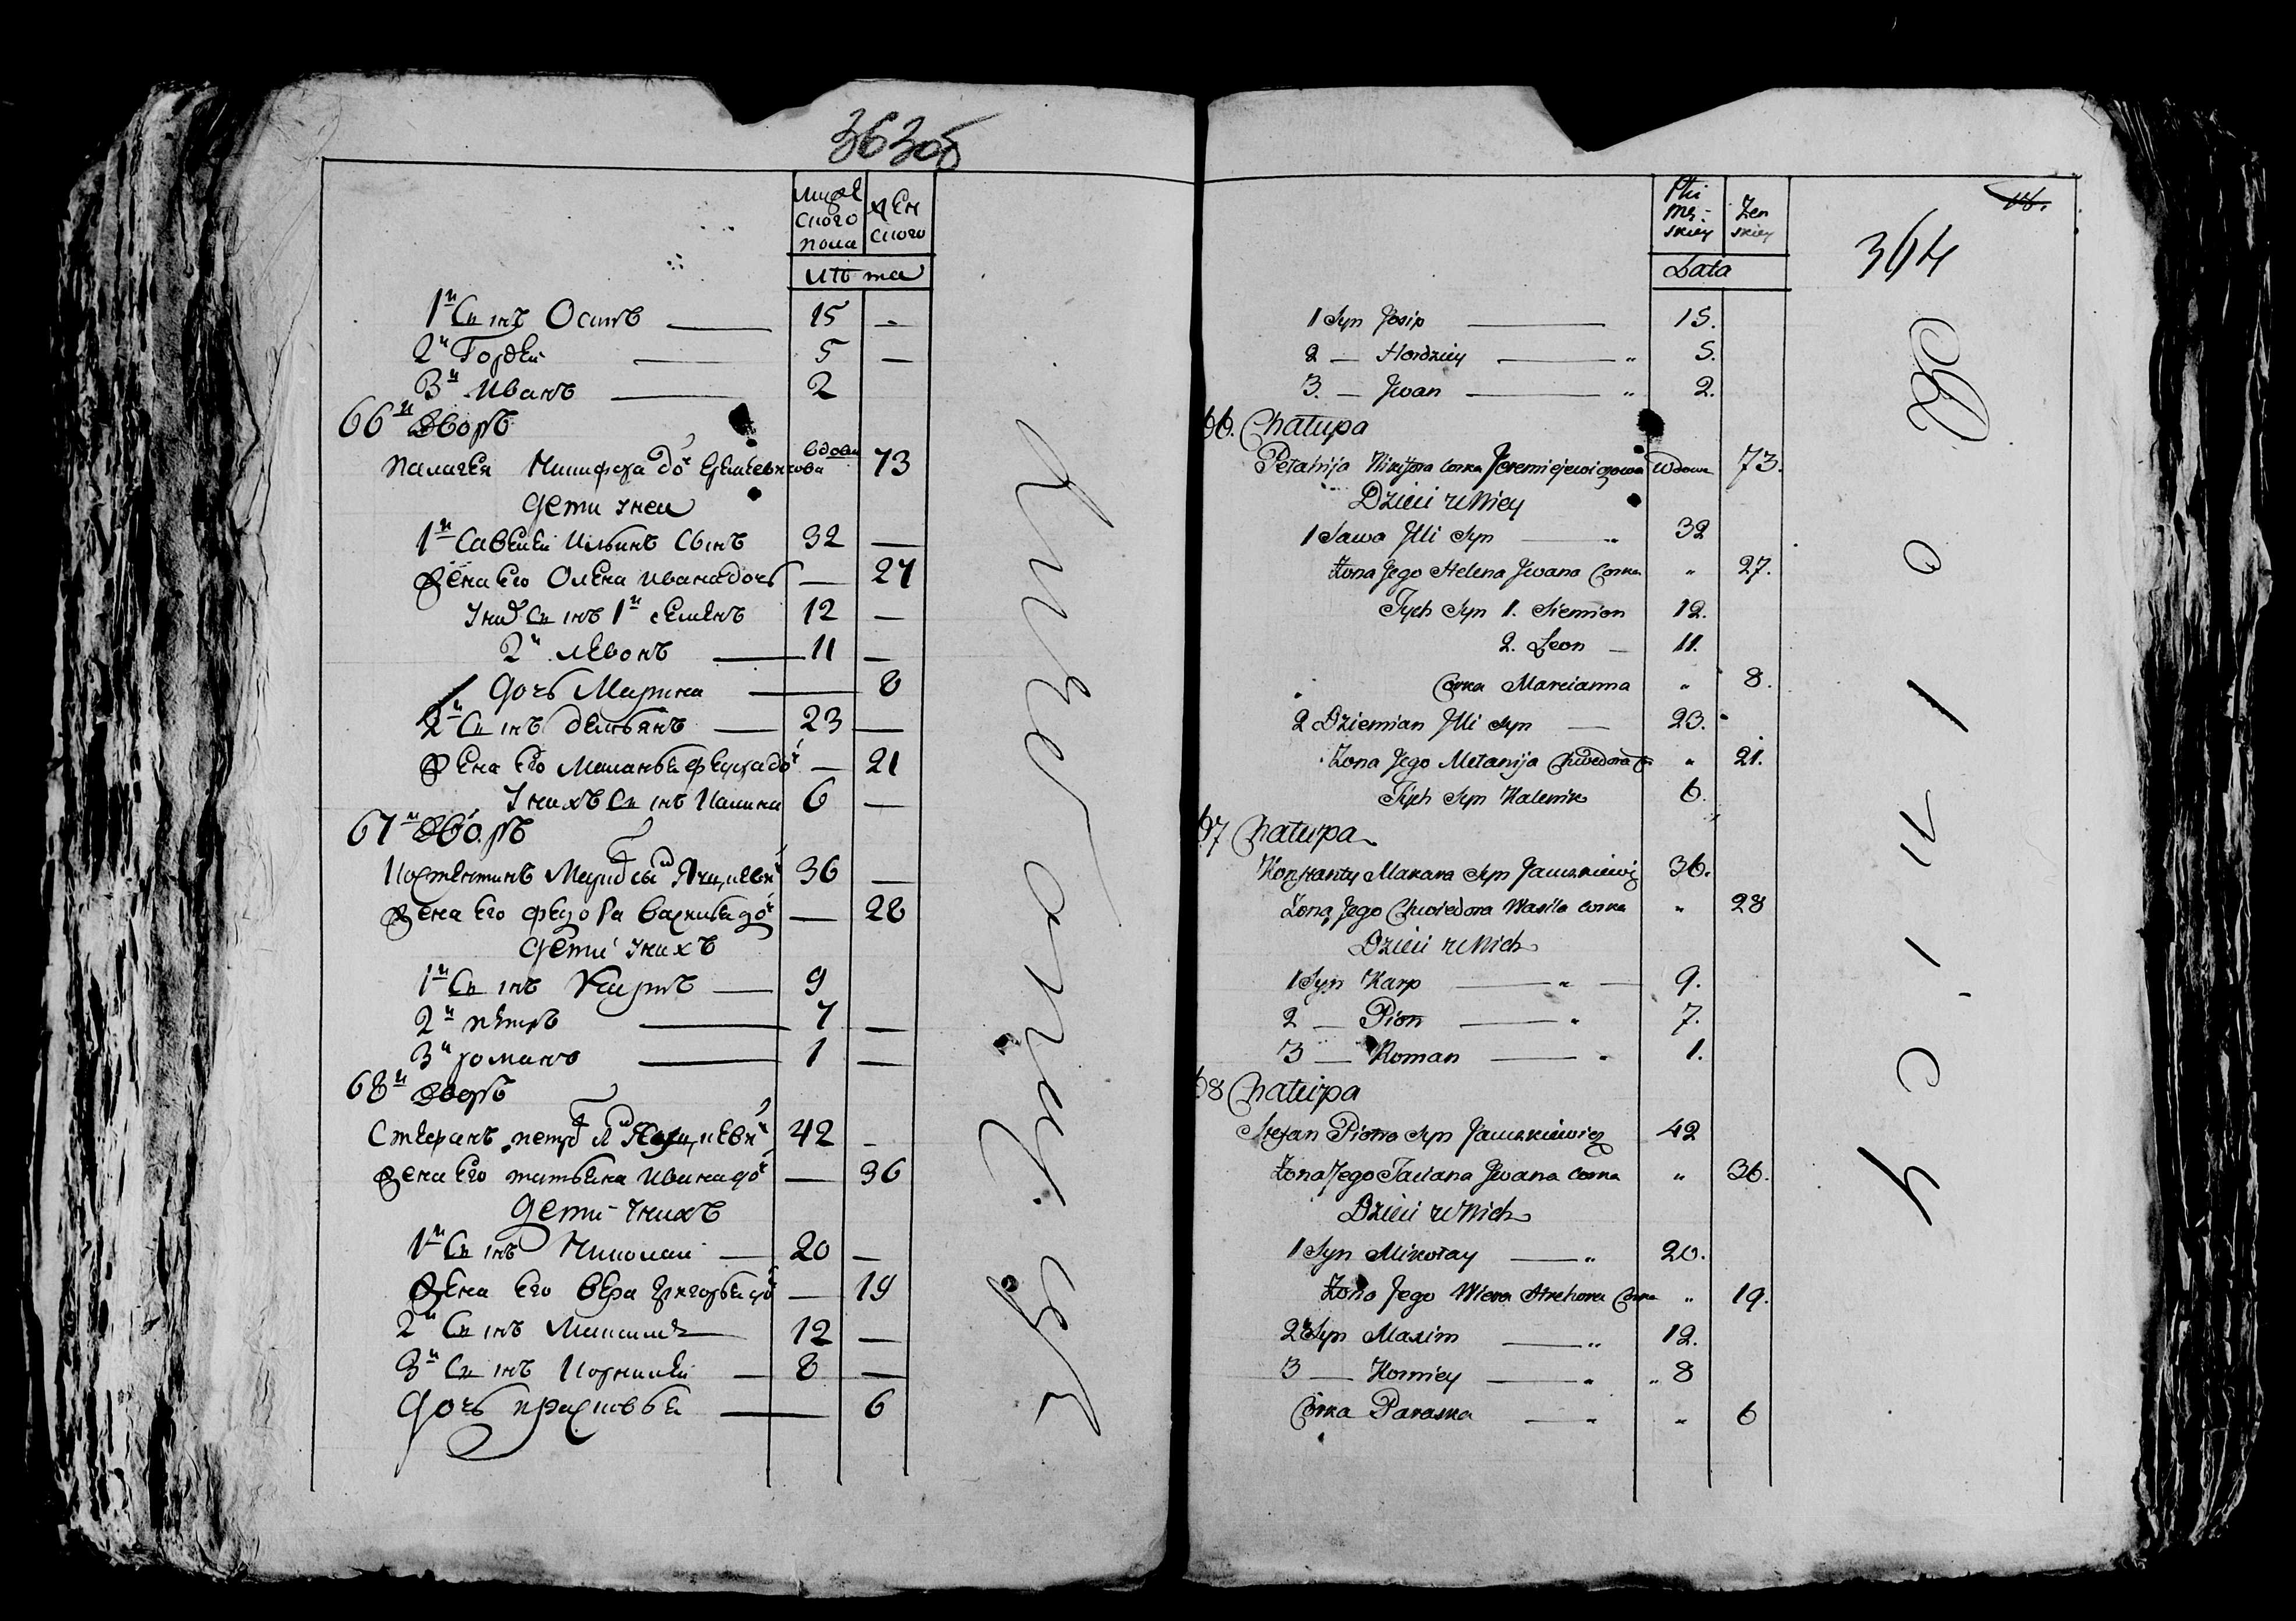 363об
мужеского пола
женского
лѣта
1й Сынъ Осипъ 15 —
2й Гордей 5 —
3й Иванъ 2
66й дворъ
Палагея Никифора доч Еремѣевичова вдова 73
Дети у неи
1й Савелей Ильинъ Сынъ 32 —
жена Его Олена Ивана дочь — 27
У них Сынъ 1й Семенъ 12 —
2й Левонъ 11 —
Дочь Марина 8
2й Сынъ демьянъ 23 —
жена Его Меланья федора доч — 21
У нихъ Сынъ Калина 6 —
67й дворъ
Костентинъ Мака Сы 36 —
жена Его федора Василья доч — 28
Дети У нихъ
1й Сынъ Карпъ 9
2й петръ 7 —
3й романъ 1 —
68й дворъ
Стефанъ петр 42 —
жена Его татьяна Ивана доч — 36
Дети Унихъ
1й Сынъ Николаи 20 —
жена Его вера Григорья доч — 19
2й Сынъ Максимъ 12 —
3й Сынъ Корнилей 8 —
Дочь прасковья 6
Płci Męskiey
Żenskiey
Lata
364
1 Syn Josip 15.
2 — Hordziey „ 5.
3. — Jwan „ 2.
66. Chatupa
Petahija Nikifora Corka Jeremiejewiczowa Wdowa 73.
Dzieci z Niey
1 Sawa Jlli Syn „ 32
Żona Jego Helena Jwana Corka „ 27.
Tych Syn 1. Siemion 12.
2. Leon — 11.
Corka Marcianna „ 8.
2 Dziemian Jlli Syn — 23.
Żona Jego Metanija Chwedora Co „ 21.
Tych Syn Kalenik 6.
67 Chatupa
Konstanty Makara Syn Jacuskiewicz 36.
Żona Jego Chwiedora Wasila Corka „ 28
Dzieci z Nich
1 Syn Karp „ — 9.
2 — Piotr „ 7.
3 — Roman „ 1.
68 Chatupa
Stefan Piotra Syn Jacuskiewicz 42
Żona Jego Taciana Jwana Corka „ 36.
Dzieci z Nich
1 Syn Mikołay „ 20.
Żona Jego Wiera Corka „ 19.
2 Syn Maxim „ 12.
3 — Korniey „ „ 8
Córka Paraska „ „ 6